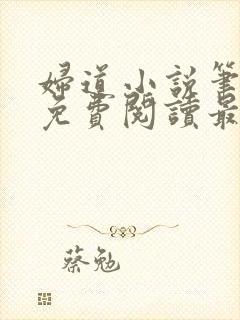 婦道小說筆
免費閱讀最
蔡勉